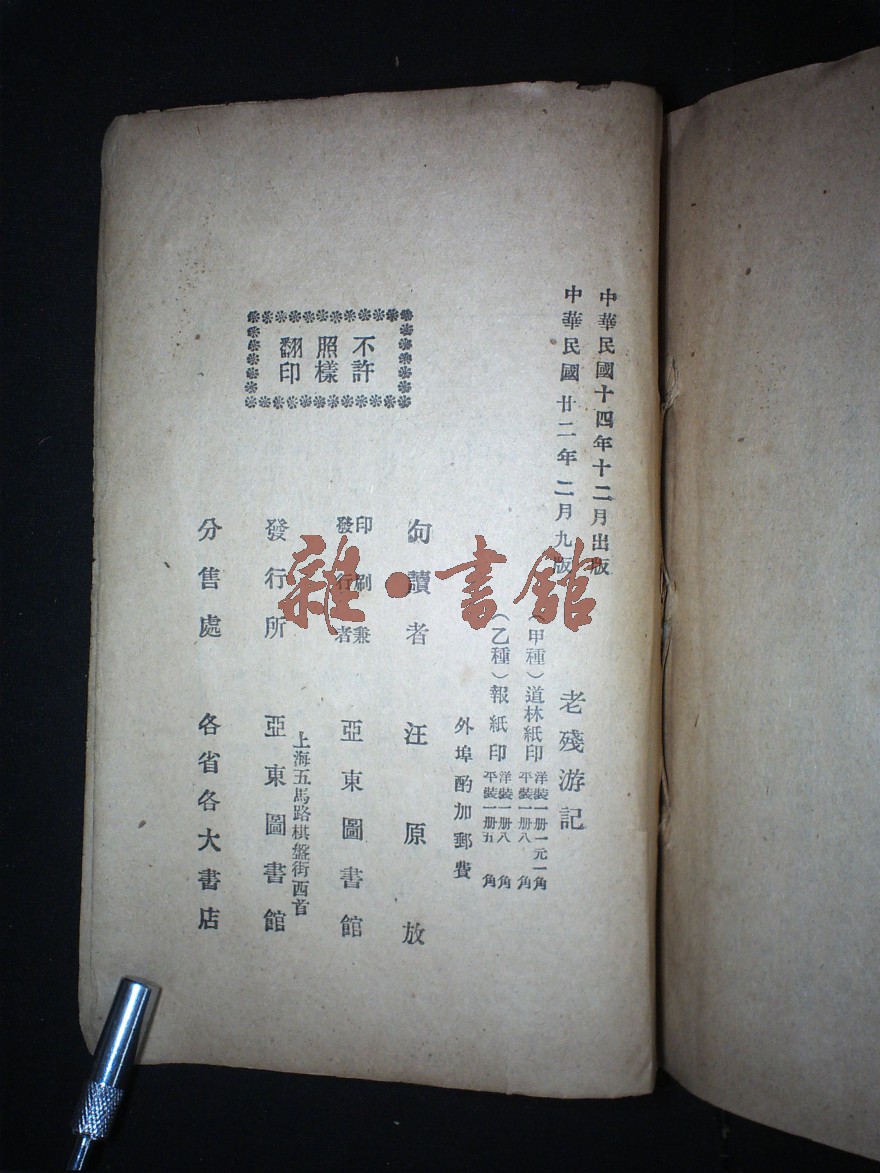 中華民國十四年十二月出版
中華民國廿二年二月九版
老殘游記
(甲種)道林紙印
洋裝一册一元一角
平裝一册八角
(乙種)報紙印
洋裝一册八角
平裝一册五角
外埠酌加郵費
句讀者 汪原放
印刷兼發行者 亞東圖書館
上海五馬路棋盤街西首
發行所 亞東圖書館
分售處 各省各大書店
不許
照樣
翻印
雜·書館